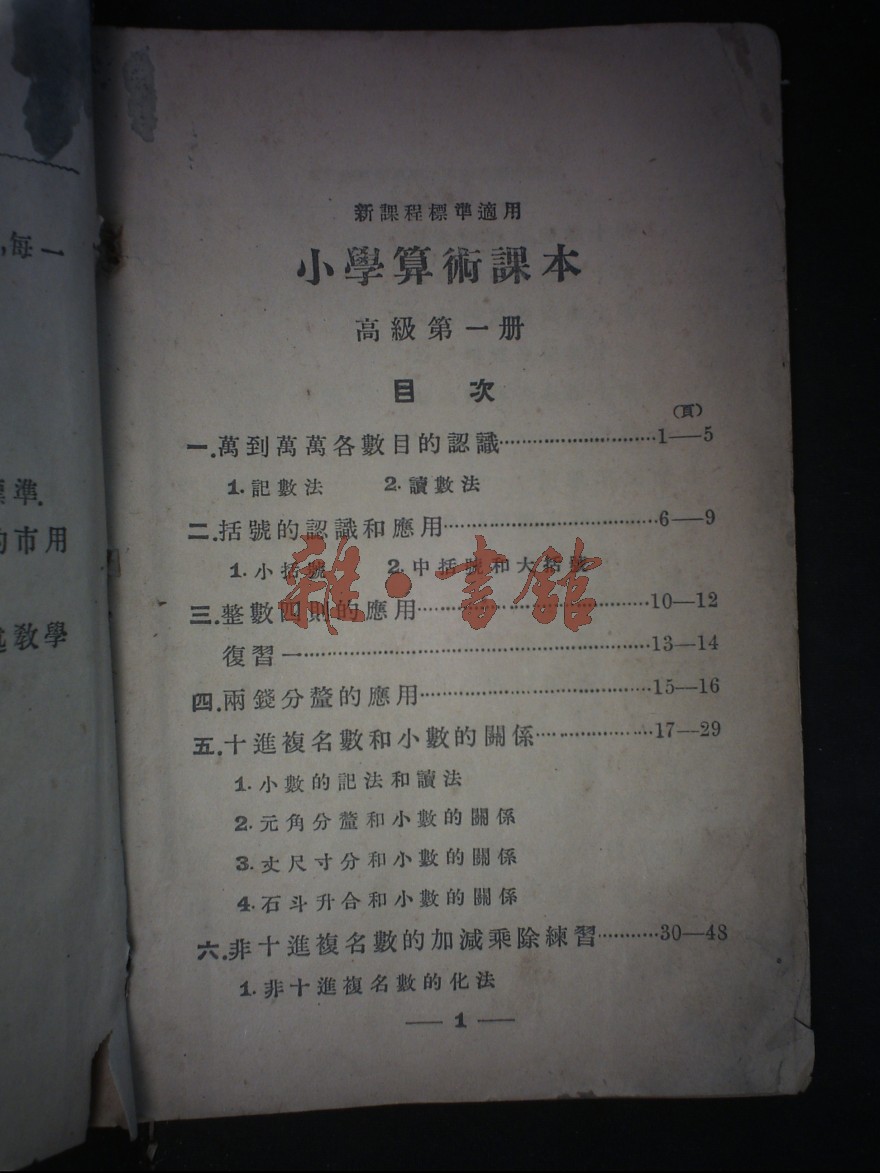 新課程標準適用
小學算術課本
高級第一册
目 次
(頁)
一.萬到萬萬各數目的認識…………………1—5
1.記數法 2.讀數法
二.括號的認識和應用…………………6—9
1.小括號 2.中括號和大括號
三.整數四則的應用…………………10—12
復習一…………………13—14
四.兩錢分釐的應用…………………15—16
五.十進複名數和小數的關係…………………17—29
1.小數的記法和讀法
2.元角分釐和小數的關係
3.丈尺寸分和小數的關係
4.石斗升合和小數的關係
六.非十進複名數的加減乘除練習…………30—48
1.非十進複名數的化法
— 1 —
雜·書館
,每一
準.
市用
教學